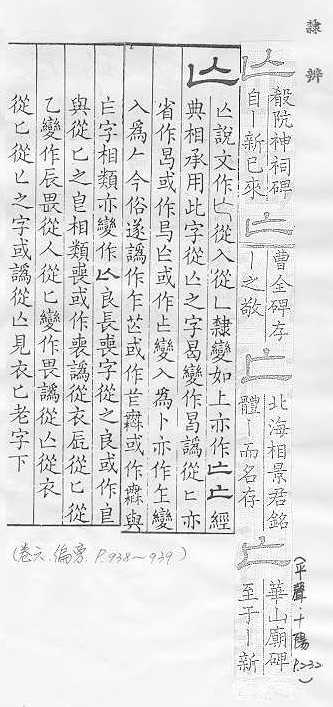 隸辨
亾 殽阬神祠碑
自丨新已來
亡 曹全碑存
丨之敬
亡 北海相景君銘
體丨而名存
亡 華山廟碑
至于丨新
(平聲·十陽 P.232)
亾
亾說文作亾從入從乚隸變如上亦作亡亡經
典相承用此字從亾之字曷變作曷譌從匕亦
省作曷或作曷亾或作變入爲卜亦作變
入爲𠂉今俗遂譌作乍或作或作與
字相類亦變作亾良長喪字從之良或作皀
與從匕之皀相類喪或作喪譌從衣從匕從
乙變作辰畏從人從匕變作畏譌從亾從衣
從匕從乚之字或譌從亾見衣匕老字下
(卷六.偏旁.P.938~939)